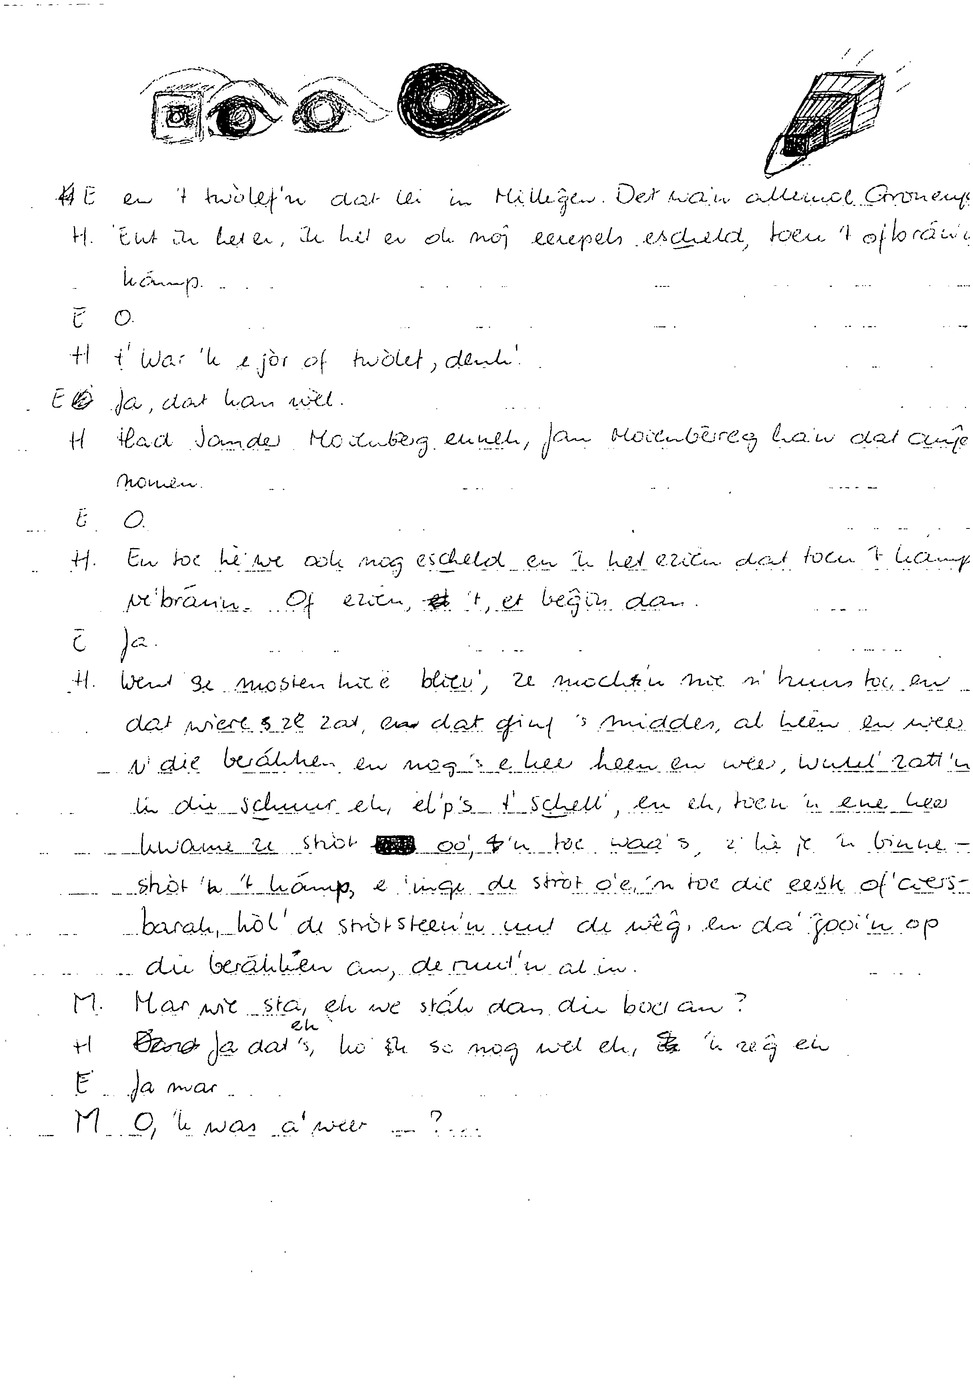 E en 't twòlef'n dat lei in Milligen. Det wa'n allemoal
H. Ent ik het er, ik het er ok noj eerepels escheld, toen 't
kámp.
E O.
H t' War 'k e jòr of twòlef, denk'.
E Ja, dat kan wèl.
H Had Sander Moienberg enneh, Jan Moienbèreg ha'n dat ange
nomen.
E O.
H. En toe hè'we ook nog escheld en 'k het ezien dat toen 't kámp
ve'bránn. Of ezien, 't, et begîn dan.
E Ja.
H. Went se mosten hiè bliev', ze mocht'n nie n' huus toe, en
dat wiere s ze zat, en dat ging 's middes, al heen en weer
n' die berákken en nog 's e kee heen en wee, zatt'n
in die schuur eh, 't schell', en eh, toen 'n ene kee
kwame ze stròt oo', 'n toe waa's, z' hè je 'n binne-
stròt 'n 't kámp, e 'inge de stròt o'e, 'n toe die eesk of
barak, hòl' de stròtsteen'n uut de wêg, en da' gooi'n op
die berákken an, de ruut'n al in.
M. Mar wie sta, eh we sták dan die boel an?
eh
H Ja dat 's, ko ik so nog wel eh, 'k zeg eh
E Ja mar
M O, 'k was a' weer — ? ...